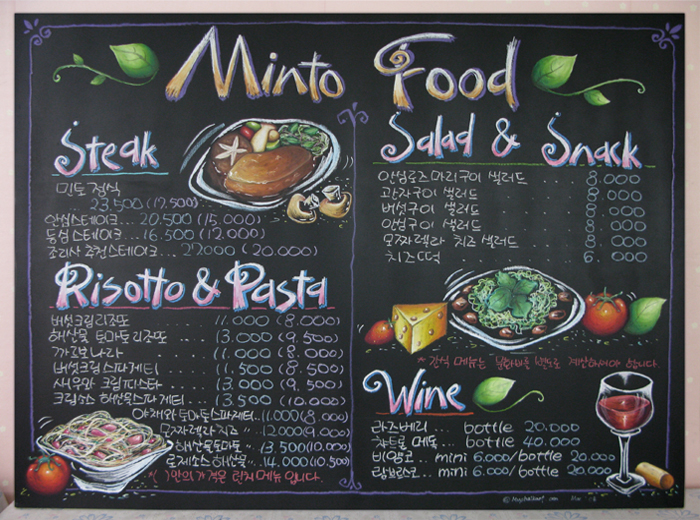 Minto Food
Steak
미토정식
23.500 (17.500)
안심스테이크... 20.500 (15.000)
등심스테이크... 16.500 (12.000)
조리사 추천스테이크... 27.000 (20.000)
Risotto & Pasta
버섯크림리조또 11.000 (8.000)
해산물 토마토리조또 13.000 (9.500)
까르보나라 11.000 (8.000)
버섯크림스파게티 11.500 (8.500)
새우와 크림 13.000 (9.500)
크림소스 해산물스파게티 13.500 (10.000)
야채와 토마토스파게티.. 11.000 (8.000)
모짜렐라 치즈 〃 12.000 (9.000)
해산물토마토 〃 13.500 (10.000)
로제소스 해산물 〃 .. 14.000 (10.500)
* ( )안의 가격은 런치메뉴 입니다.
Salad & Snack
안심로즈마리구이 샐러드 8.000
과자구이 샐러드 8.000
버섯구이 샐러드 8.000
안심구이 샐러드 8.000
모짜렐라 치즈 샐러드 8.000
치즈떡 6.000
* 간식 메뉴는 합니다.
Wine
라즈베리... bottle 20.000
샤또 메독.. bottle 40.000
비앙코.. mini 6.000/bottle 20.000
람브로스코.. mini 6.000/bottle 20.000